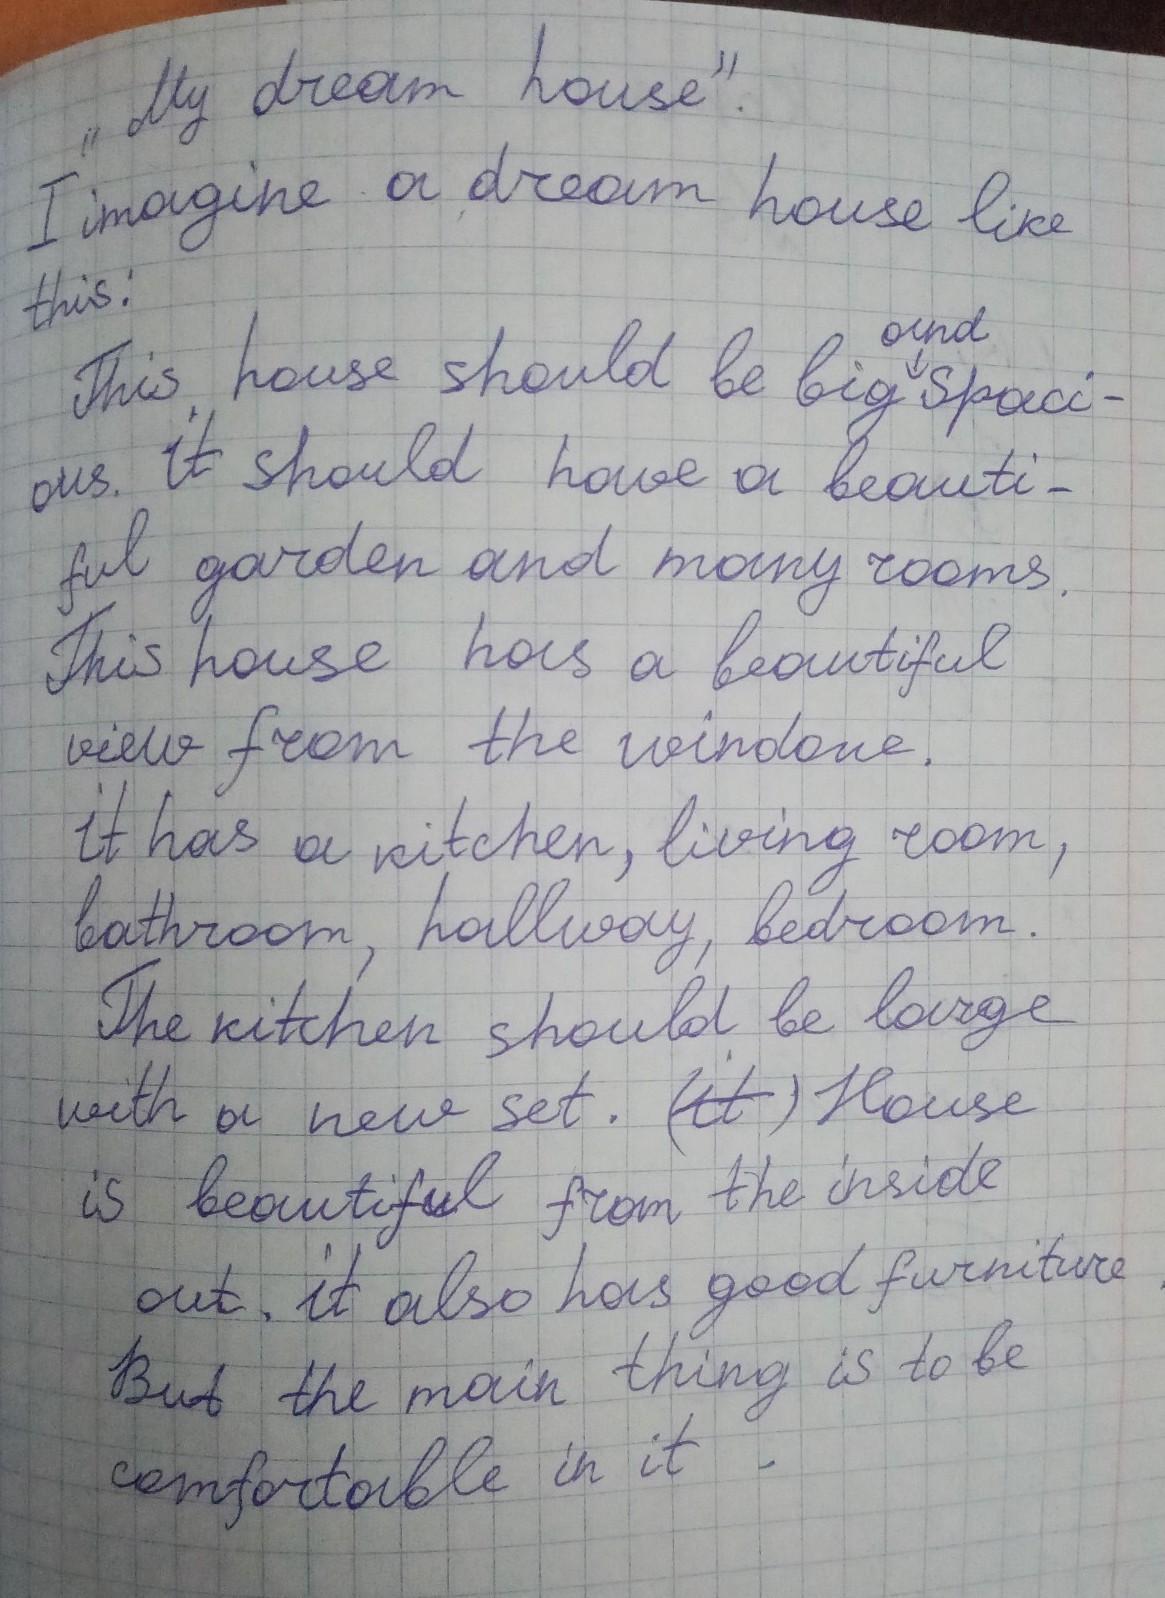 „My dream house".
I imagine a dream house like
this:
and
This house should be big spaci-
ous. it should have a beauti-
ful garden and many rooms.
This house has a beautiful
view from the windowe.
it has a kitchen, living room,
bathroom, hallway, bedroom.
The kitchen should be large
with a new set. (it) House
is beautiful from the inside
out. it also has good furniture.
But the main thing is to be
comfortable in it.